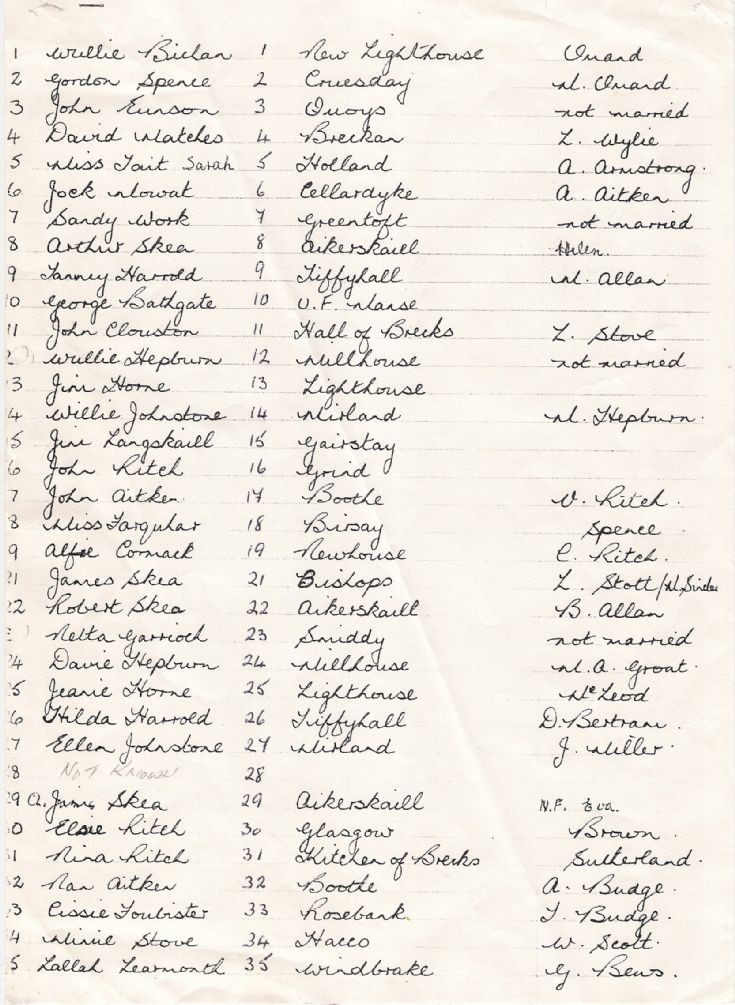 1 Willie Bichan 1 New Lighthouse Omand
2 Gordon Spence 2 Cruesday M. Omand
3 John Eunson 3 Quoys not married
4 David Matches 4 Breckan L. Wylie
5 Miss Tait Sarah 5 Holland A. Armstrong.
6 Jock Mowat 6 Cellardyke A. Aitken
7 Sandy Work 7 Greentoft not married
8 Arthur Skea 8 Aikerskaill Helen.
9 Tammy Harrold 9 Tiffyhall M. Allan
10 George Bathgate 10 U.F. Manse
11 John Clouston 11 Hall of Brecks L. Stove
2) Willie Hepburn 12 Millhouse not married
3 Jim Horne 13 Lighthouse
4 Willie Johnstone 14 Mirland M. Hepburn.
5 Jim Langskaill 15 Gairstay
6 John Ritch 16 Grind
7 John Aitken. 17 Boothe V. Ritch.
8 Miss Farquhar 18 Birsay Spence.
9 Alfie Cormack 19 Newhouse C. Ritch.
21 James Skea 21 Bishops L. Stott/M. Sinclair
22 Robert Skea 22 Aikerskaill B. Allan
) Netta Garrioch 23 Smiddy not married
24 Davie Hepburn 24 Millhouse M. A. Groat.
25 Jeanie Horne 25 Lighthouse McLeod
26 Hilda Harrold 26 Tiffyhall D. Bertram.
7 Ellen Johnstone 27 Mirland J. Miller.
28 NOT KNOWN 28
29 Skea 29 Aikerskaill N.F. Eva.
0 Elsie Ritch 30 Glasgow Brown.
31 Nina Ritch 31 Kitchen of Brecks Sutherland.
32 Nan Aitken 32 Boothe A. Budge.
3 Cissie Foubister 33 Rosebank T. Budge.
4 Minnie Stove 34 Hacco W. Scott.
5 Lallah Learmonth 35 Windbrake G. Bews.